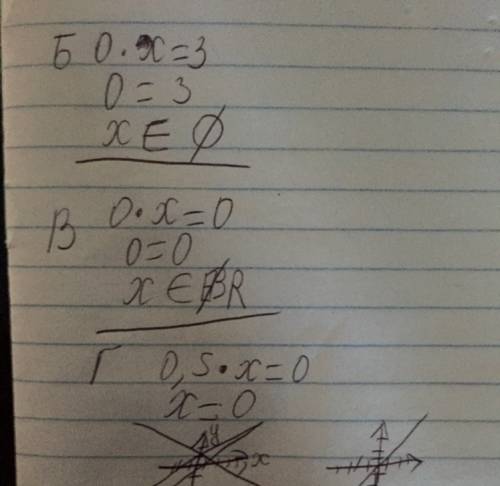 Б 0 · x = 3
0 = 3
x ∈ ∅
В 0 · x = 0
0 = 0
x ∈ R
Г 0,5 · x = 0
x = 0
y
x